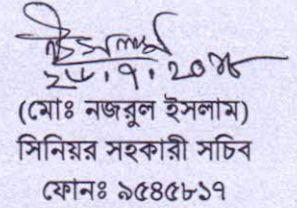 ২৮.৭.২০১৮
(মোঃ নজরুল ইসলাম)
সিনিয়র সহকারী সচিব
ফোনঃ ৯৫৪৫৮১৭